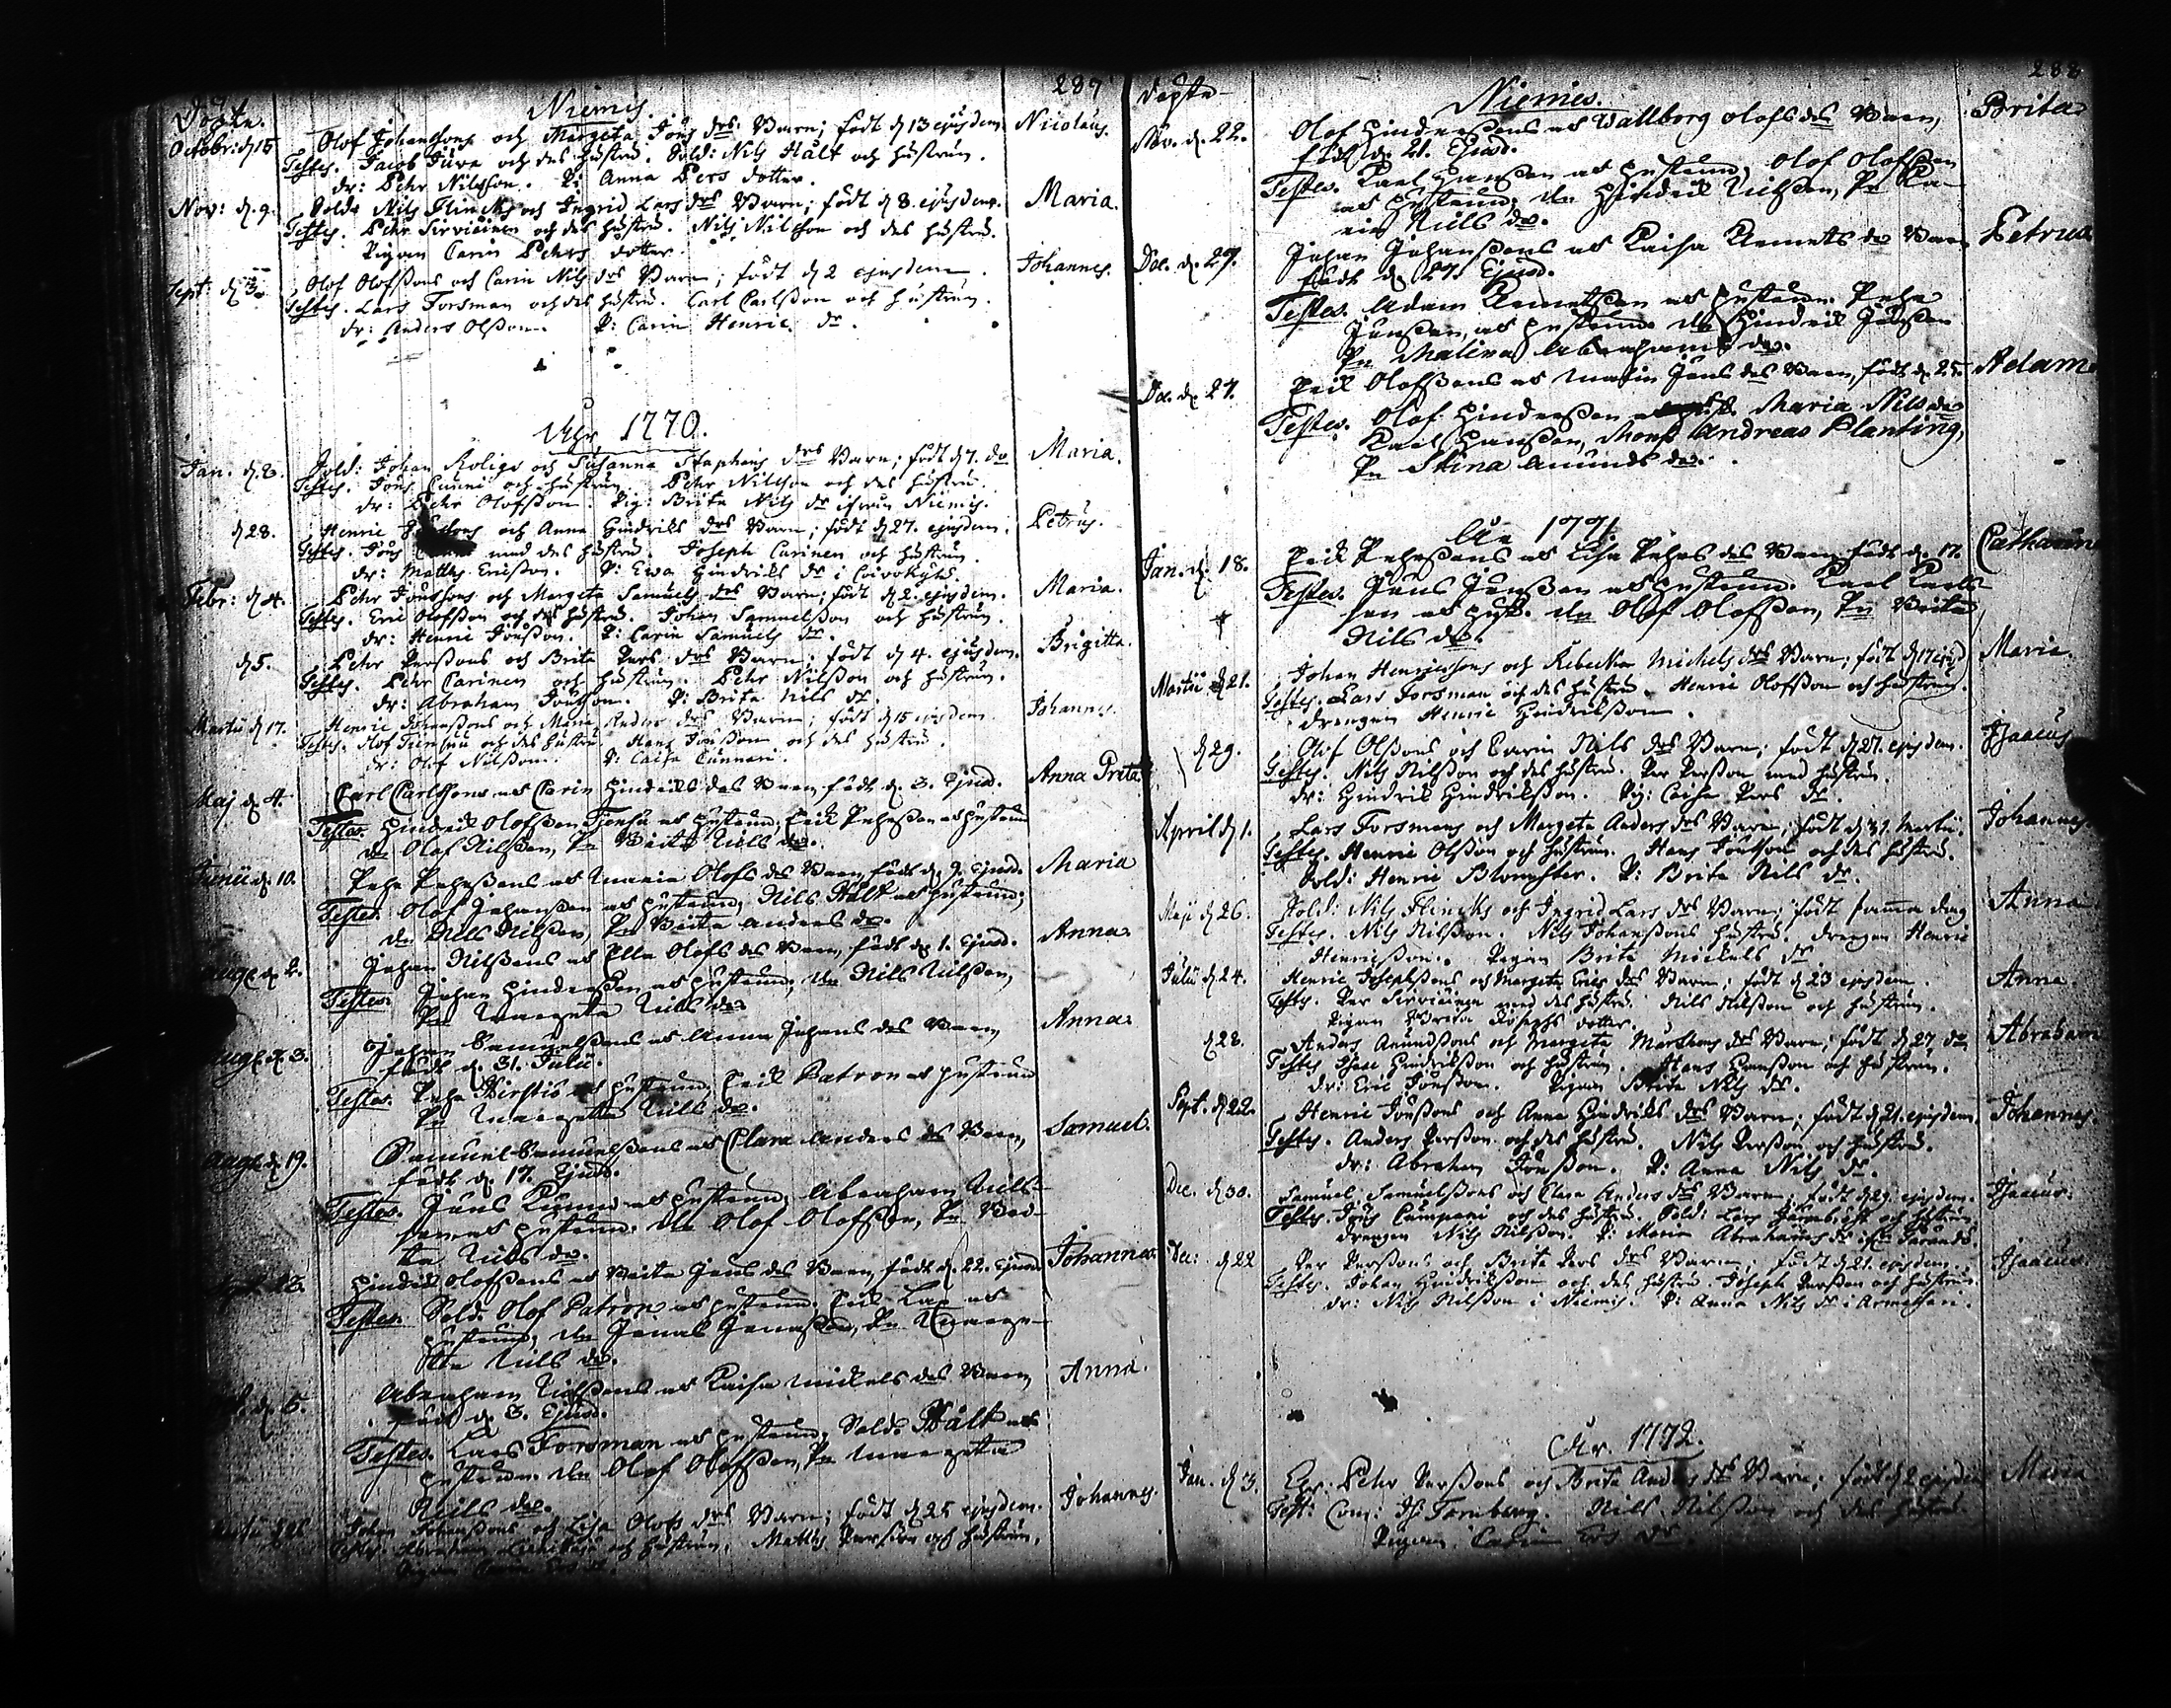 287
Döpte.
Niemis.
Octobr: d 15 Olof Johanssons och Margeta Jöns drs Barn; födt d 13 ejusdem. Nicolaus.
Testes. Jacob Jure och des hustru. Sold: Nils Hält och hustrun.
dr: Pehr Nilsson. P: Anna Pers dotter.
Nov: d. 9. Solds Nils Flincks och Ingrid Lars drs Barn; födt d 8. ejusdem. Maria.
Testes. Pehr Sirviäinen och des hustru. Nils Nilsson och des hustru.
Pigan Carin Pehrs dotter.
Sept: d 3. Olof Olofssons och Carin Nils drs Barn; födt d 2 ejusdem. Johannes.
Testes. Lars Forsman och des hustru. Carl Carlsson och hustrun.
dr: Anders Olsson. P: Carin Henric dr.
Åhr 1770.
Jan. d. 8. Sold: Johan Roligs och Susanna Staphans drs Barn; födt d 7. do Maria.
Testes. Jöns Cunni och hustrun. Pehr Nilsson och des hustru.
dr: Pehr Olofsson. Pig: Brita Nils dr ifrån Niemis.
d 28. Henric och Anna Hindriks drs Barn; födt d 27. ejusdem. Petrus.
Testes. Jöns med des hustru. Joseph Carinen och hustrun.
dr: Matths Ericsson. P: Ewa Hindriks dr i Coivokylä.
Febr: d 4. Pehr Jönssons och Margeta Samuels drs Barn; födt d 2. ejusdem. Maria.
Testes. Eric Olofsson och des hustru. Johan Samuelsson och hustrun.
dr: Henric Jönsson. P: Carin Samuels dr.
d 5. Pehr Perssons och Brita Pers drs Barn; födt d 4. ejusdem. Brigitta.
Testes. Pehr Carinen och hustrun. Pehr Nilsson och hustrun.
dr: Abraham Jönsson. P: Brita Nils dr.
Martii d 17. Henric Johanssons och Maria Anders drs Barn; födt d 15 ejusdem. Johannes.
Testes. Olof och des hustru. Hans Jönsson och des hustru.
dr: Olof Nilsson. P: Caisa Cunnari.
Maj d. 4. Carl Carlssons os Carin Hindriks des Barn födt d. 3. Ejusd. Anna Brita
Testes. Hindrik Olofsson os hustrun; Erik Pehrsson os hustrun
dr Olof Nilsson, Pn Brita Nils dr.
Junii d. 10. Pehr Pehrssons os Maria Olofs des Barn, födt d. 9. Ejusd. Maria
Testes. Olof Johansson os hustrun, Nils Hält os hustrun;
dr Nils Nilsson, Pn Brita Anders dr.
Aug. d. 2. Johan Nilssons os Ella Olofs des Barn, födt d. 1. Ejusd. Anna
Testes. Johan Hindersson os hustrun, dr Nils Nilsson,
Pn Margeta Nils dr
Aug. d. 3. Johan Samuelssons os Anna Johans des Barn Anna
födt d. 31. Julii.
Testes. Pehr os hustrun, Erik Patron os hustrun
Pn Margetta Nils dr.
Aug. d. 19. Samuel Samuelssons os Clara Anders ds Barn, Samuel.
födt d. 17. Ejusd.
Testes. Jöns Kunni os hustrun, Abraham Nils-
son os hustrun. dr Olof Olofsson, Pn Bri-
ta Nils dr.
23. Hindrik Olofssons os Brita Jöns ds Barn, födt d. 22. Ejusd Johannes.
Testes. Sold. Olof Patron os hustrun. Erik Lax os
hustrun, dr Jonas Jonasson, Pn Marge-
tta Nils dr.
d. 5. Abraham Nilssons os Kaisa Mickels des Barn Anna
födt d. 3. Ejusd.
Testes. Lars Forsman os hustrun, Sold. Hält os
hustrun. dr Olof Olofsson, Pn Margeta
Nils dr.
Johan Johanssons och Lisa Olofs drs Barn; födt d 25 ejusdem. Johannes.
Testes. Abraham och hustrun. Matths Persson och hustrun.
Pigan Carin
288
Döpte
Niemis.
Nov. d. 22. Olof Hinderssons os Wallborg Olofs ds Barn, Brita
födt d. 21. Ejusd.
Testes. Karl Hansson os hustrun, Olof Olofsson
os hustrun, dr Hindrik Nilsson, Pn Ka-
rin Nils dr.
Dec. d. 27. Johan Johanssons os Kaisa Klemets dr Barn Petrus
födt d. 27. Ejusd.
Testes. Adam Klemetsson os hustrun. Pehr
Jönsson, os hustrun dr Hindrik Jönsson
Pn Malina Abrahams dr.
Dec. d. 27. Erik Olofssons os Malin Jöns ds Barn, födt d. 25. Adam
Testes. Olof Hindersson Maria Nils dr
Karl Hansson, Mons. Andreas Planting,
Pn Stina Amunds dr.
År 1771.
Jan. d. 18. Erik Pehrssons os Lisa Pehrs ds Barn födt d. 17. Catharina
Testes. Jöns Jönsson os hustrun. Karl Karls-
son os hust. dr Olof Olofsson, Pn Brita
Nils dr.
Martii d 21. Johan Henricssons och Rebecka Michels drs Barn; födt d 17 ejusd Maria.
Testes. Lars Forsman och des hustru. Henric Olofsson och hustrun.
drengen Henric Hindriksson.
d 29. Olof Olssons och Carin Nils drs Barn; födt d 27. ejusdem. Isaacus
Testes. Nils Nilsson och des hustru. Per Persson med hustrun.
dr: Hindrik Hindriksson. Pig: Caisa Pers dr.
April d 1. Lars Forsmans och Margeta Anders drs Barn; födt d 31. Martii. Johannes.
Testes. Henric Olsson och hustrun. Hans Jönsson och des hustru.
Sold: Henric Blomster. P: Brita Nils dr.
Maji d 26. Sold: Nils Flincks och Ingrid Lars drs Barn; födt samma dag Anna
Testes. Nils Nilsson. Nils Johanssons hustru. drengen Henric
Henricsson. Pigan Brita Mickels dr
Julii d 24. Henric Josephssons och Margeta Erics drs Barn; födt d 23 ejusdem. Anna.
Testes. Per Sirviäinen med des hustru. Nils Nilsson och hustrun.
Pigan Brita Josephs dotter.
d 28. Anders Amundssons och Margeta Mårtens drs Barn; födt d 27. do Abraham
Testes. Hindriksson och hustrun. Hans Hansson och hustrun.
dr: Eric Jönsson. Pigan Brita Nils dr.
Sept. d 22. Henric Jönssons och Anna Hindriks drs Barn; födt d 21. ejusdem. Johannes.
Testes. Anders Persson och des hustru. Nils Persson och hustrun.
dr: Abraham Jönsson. P: Anna Nils dr.
Dec. d 30. Samuel Samuelssons och Clara Anders drs Barn; födt d 29. ejusdem. Isaacus.
Testes. Jöns och des hustru. Sold: Lars och hustrun
drengen Nils Nilsson. P: Maria Abrahams dr
Dec: d 22 Per Perssons och Brita Pers drs Barn; födt d 21. ejusdem. Isaacus.
Testes. Johan Hindriksson och des hustru. Joseph Persson och hustrun.
dr: Nils Nilsson i Niemis. P: Anna Nils dr i Armassari.
År. 1772.
Jan. d 3. Pehr Perssons och Brita Anders drs Barn; födt d 2 ejusdem Maria
Test: Com: Is Fornberg. Nils Nilsson och des hustru.
Pigan Carin